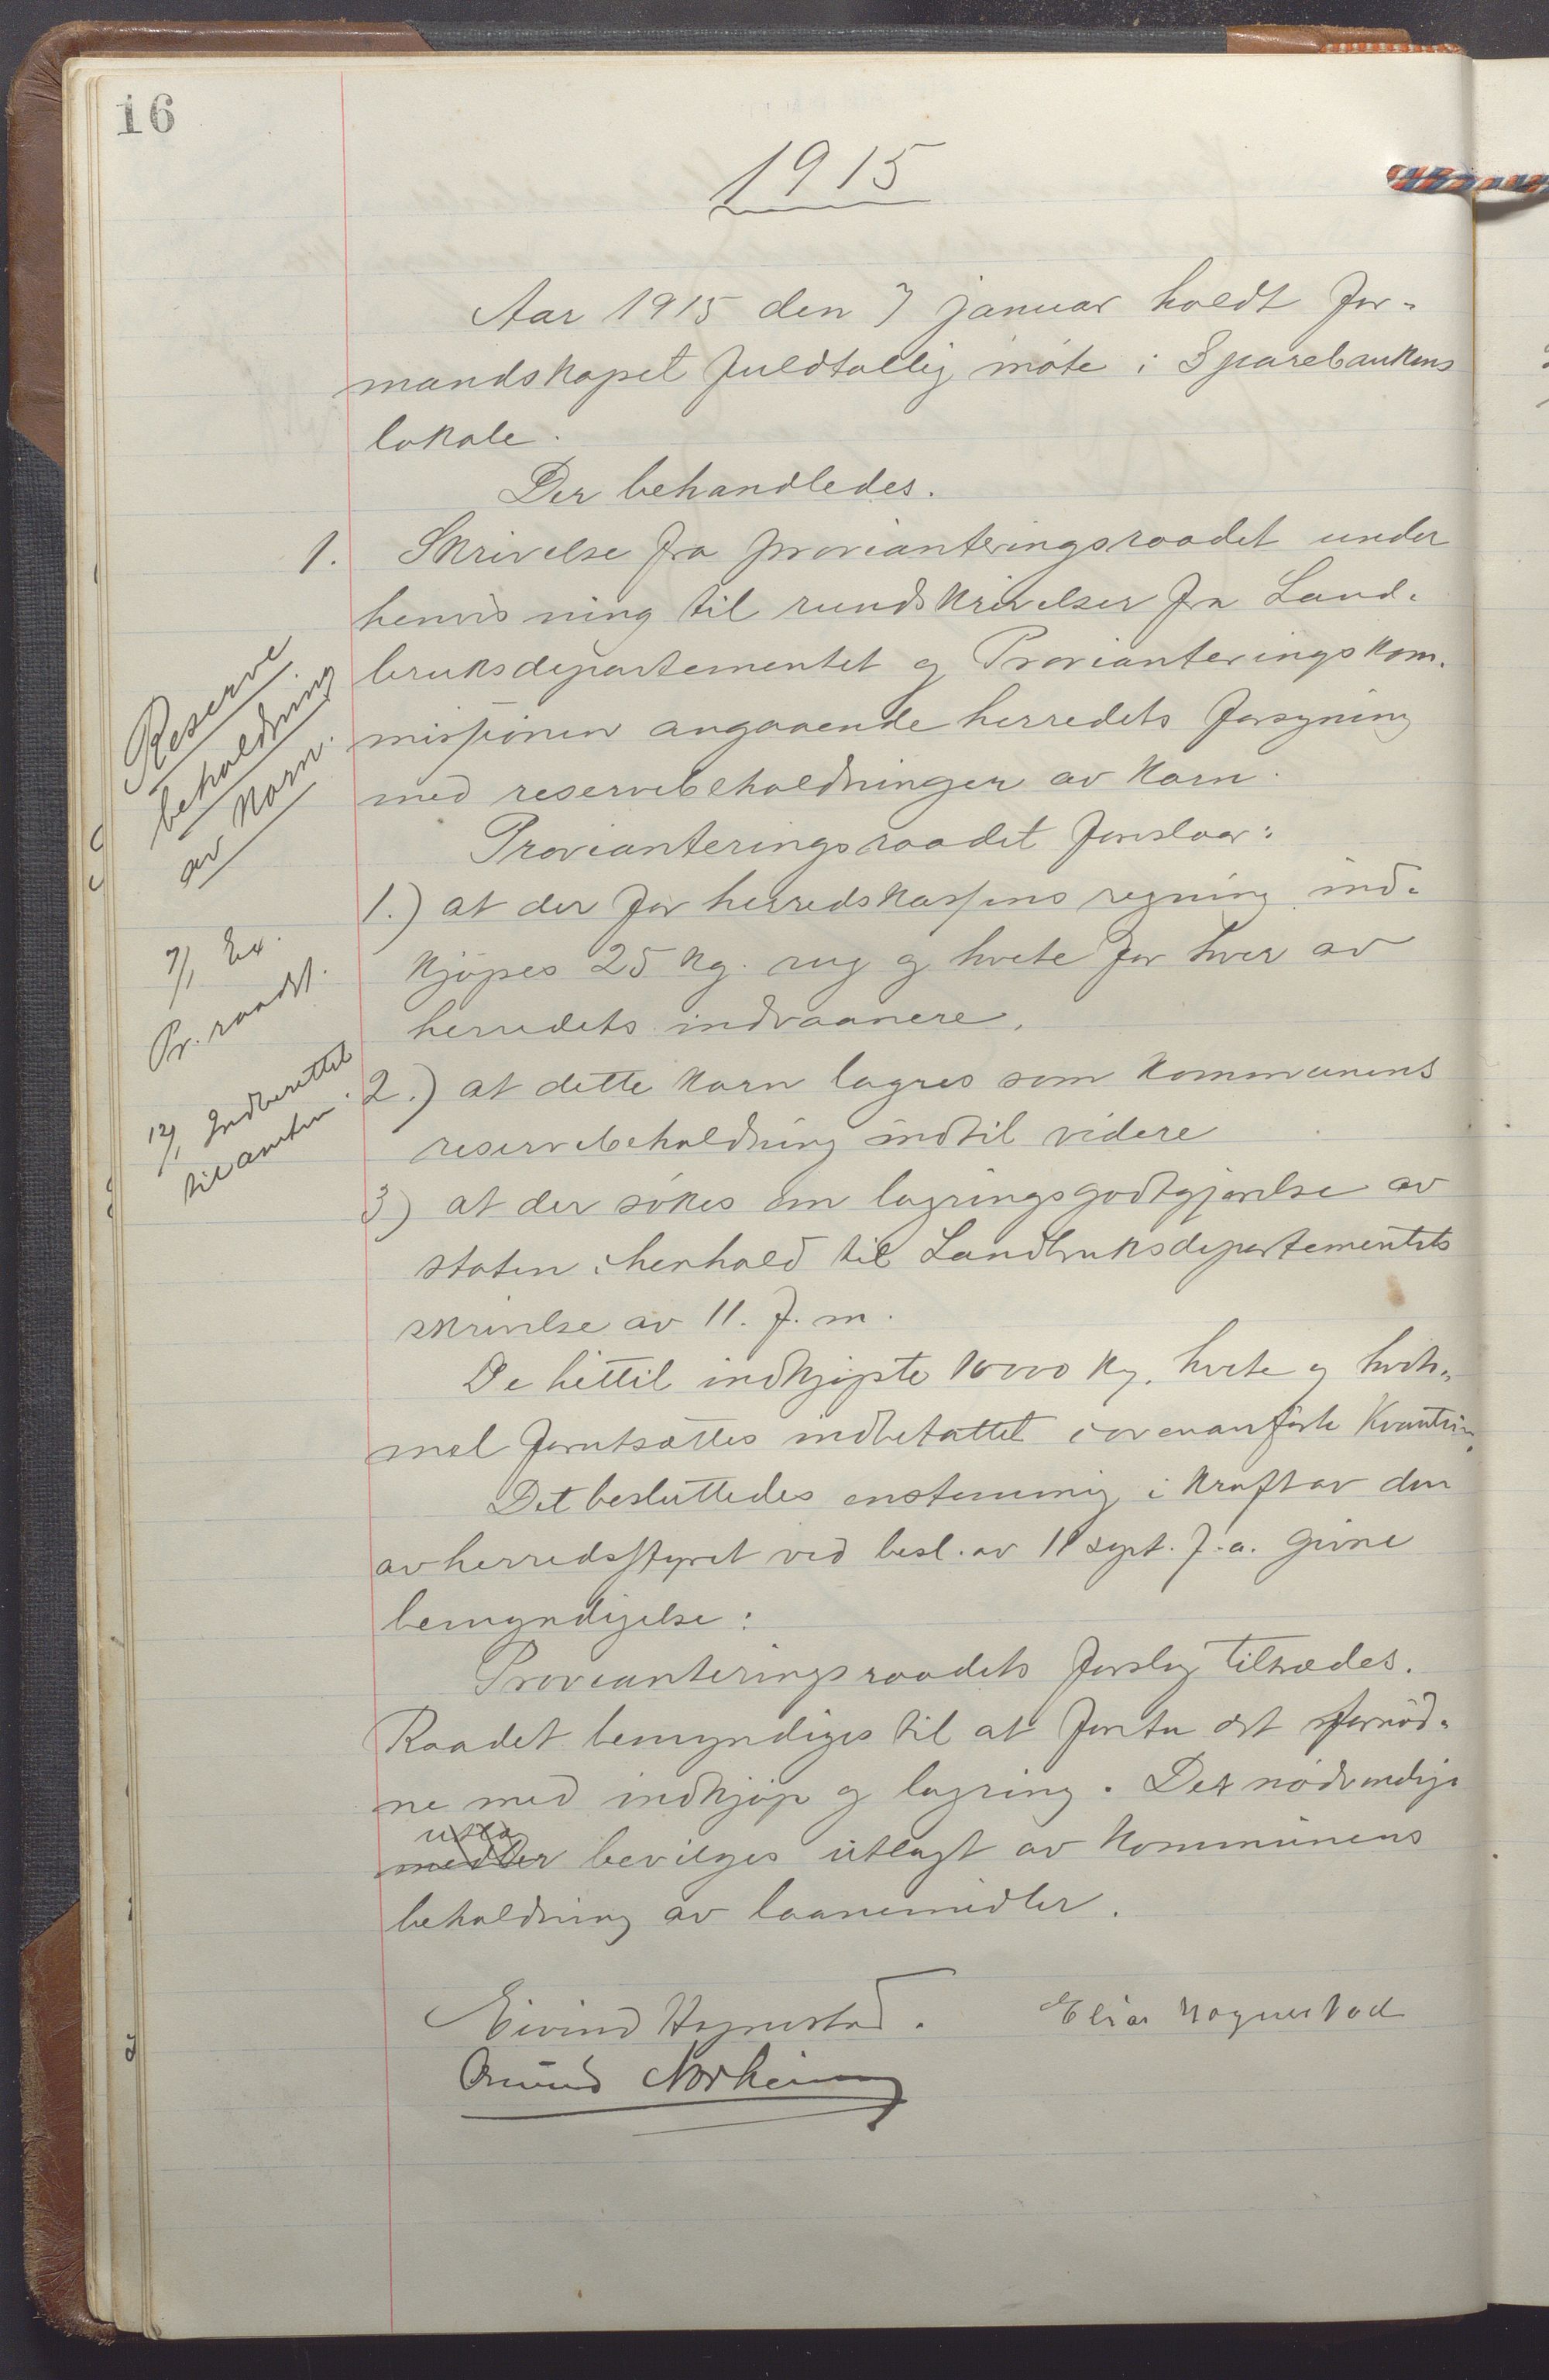 16
1915
Aar 1915 den 7 januar holdt for-
mandskapet fuldtallig møte i Sparebankens
lokale.
Der behandledes.
1. Skrivelse fra provianteringsraadet under
henvisning til rundskrivelser fra Land-
bruksdepartementet og Provianteringskom-
missionen angaaende herredets forsyning
med reservebeholdninger av korn.
Reserve
beholdning
av korn.
Provianteringsraadet foreslaar:
1.) at der for herredskassens regning ind-
kjøpes 25 kg. rug og hvete for hver av
herredets indvaanere.
7/1 Ex.
Pr. raadet.
2.) at dette korn lagres som kommunens
reservebeholdning indtil videre
12/1 Indberettet
til amtm.
3) at der søkes om lagringsgodtgjørelse av
staten i henhold til Landbruksdepartementets
skrivelse av 11. f. m.
De hittil indkjøpte 10000 kg. hvete og hvete-
mel forutsættes indbefattet i ovenanførte kvantum.
Det besluttedes enstemmig i kraft av den
av herredsstyret ved besl. av 11 sept. f. a. givne
bemyndigelse:
Provianteringsraadets forslag tiltrædes.
Raadet bemyndiges til at foreta det fornød-
ne med indkjøp og lagring. Det nødvendige
utlæg
midler bevilges utlagt av kommunens
beholdning av laanemidler.
Eivind Hognestad. Elias Hognestad
Omund Norheim